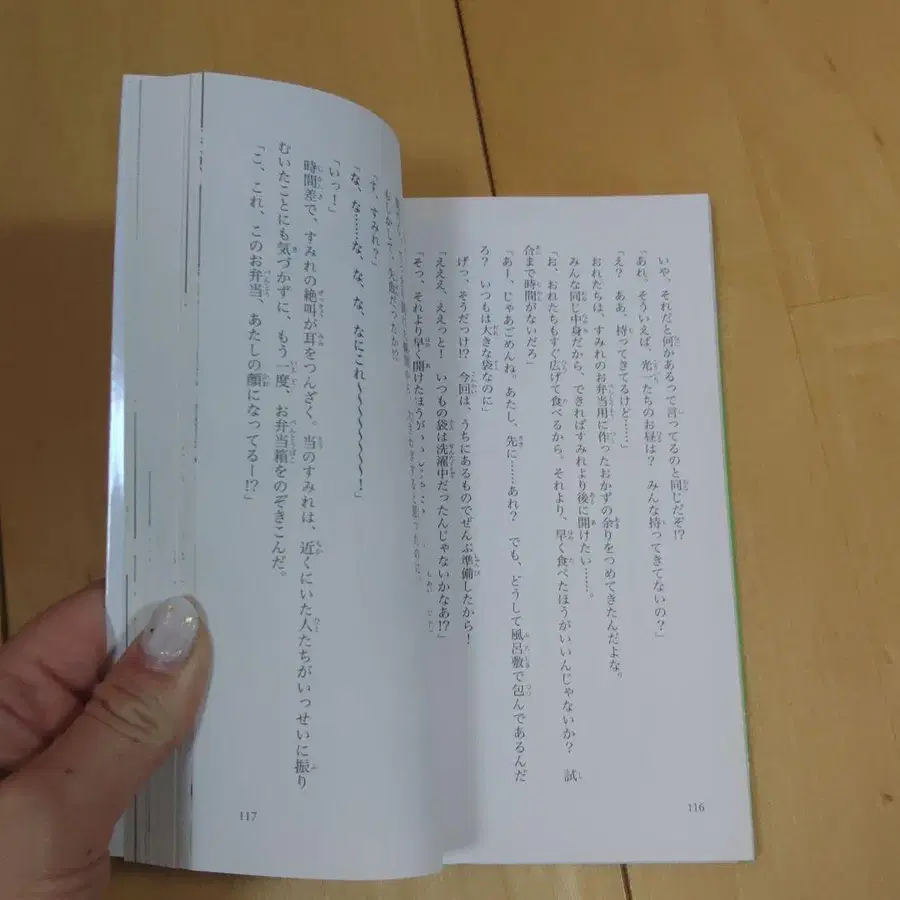 いや、それだと何かあるって言ってるのと同じだぞ!?
「あれ、そういえば、光一たちのお昼は? みんな持ってきてないの?」
「え? ああ、持ってきてるけど……」
おれたちは、すみれのお弁当用に作ったおかずの余りをつめてきたんだよな。
みんな同じ中身だから、できればすみれより後に開けたい……。
「お、おれたちもすぐ広げて食べるから。それより、早く食べたほうがいいんじゃないか? 試
合まで時間がないだろ」
「あー、じゃあごめんね。あたし、先に……あれ? でも、どうして風呂敷で包んであるんだ
ろ? いつもは大きな袋なのに」
げっ、そうだっけ!? 今回は、うちにあるものでぜんぶ準備したから!
「ええ、ええっと! いつもの袋は洗濯中だったんじゃないかなあ!?」
「そっ、それより早く開けたほうが
もしかして、失敗だったか!?
「す、すみれ?」
「な、な……な、な、な、なにこれ〜〜〜〜〜〜!」
「いっ!」
時間差で、すみれの絶叫が耳をつんざく。当のすみれは、近くにいた人たちがいっせいに振り
むいたことにも気づかずに、もう一度、お弁当箱をのぞきこんだ。
「こ、これ、このお弁当、あたしの顔になってるー!?」
116
117